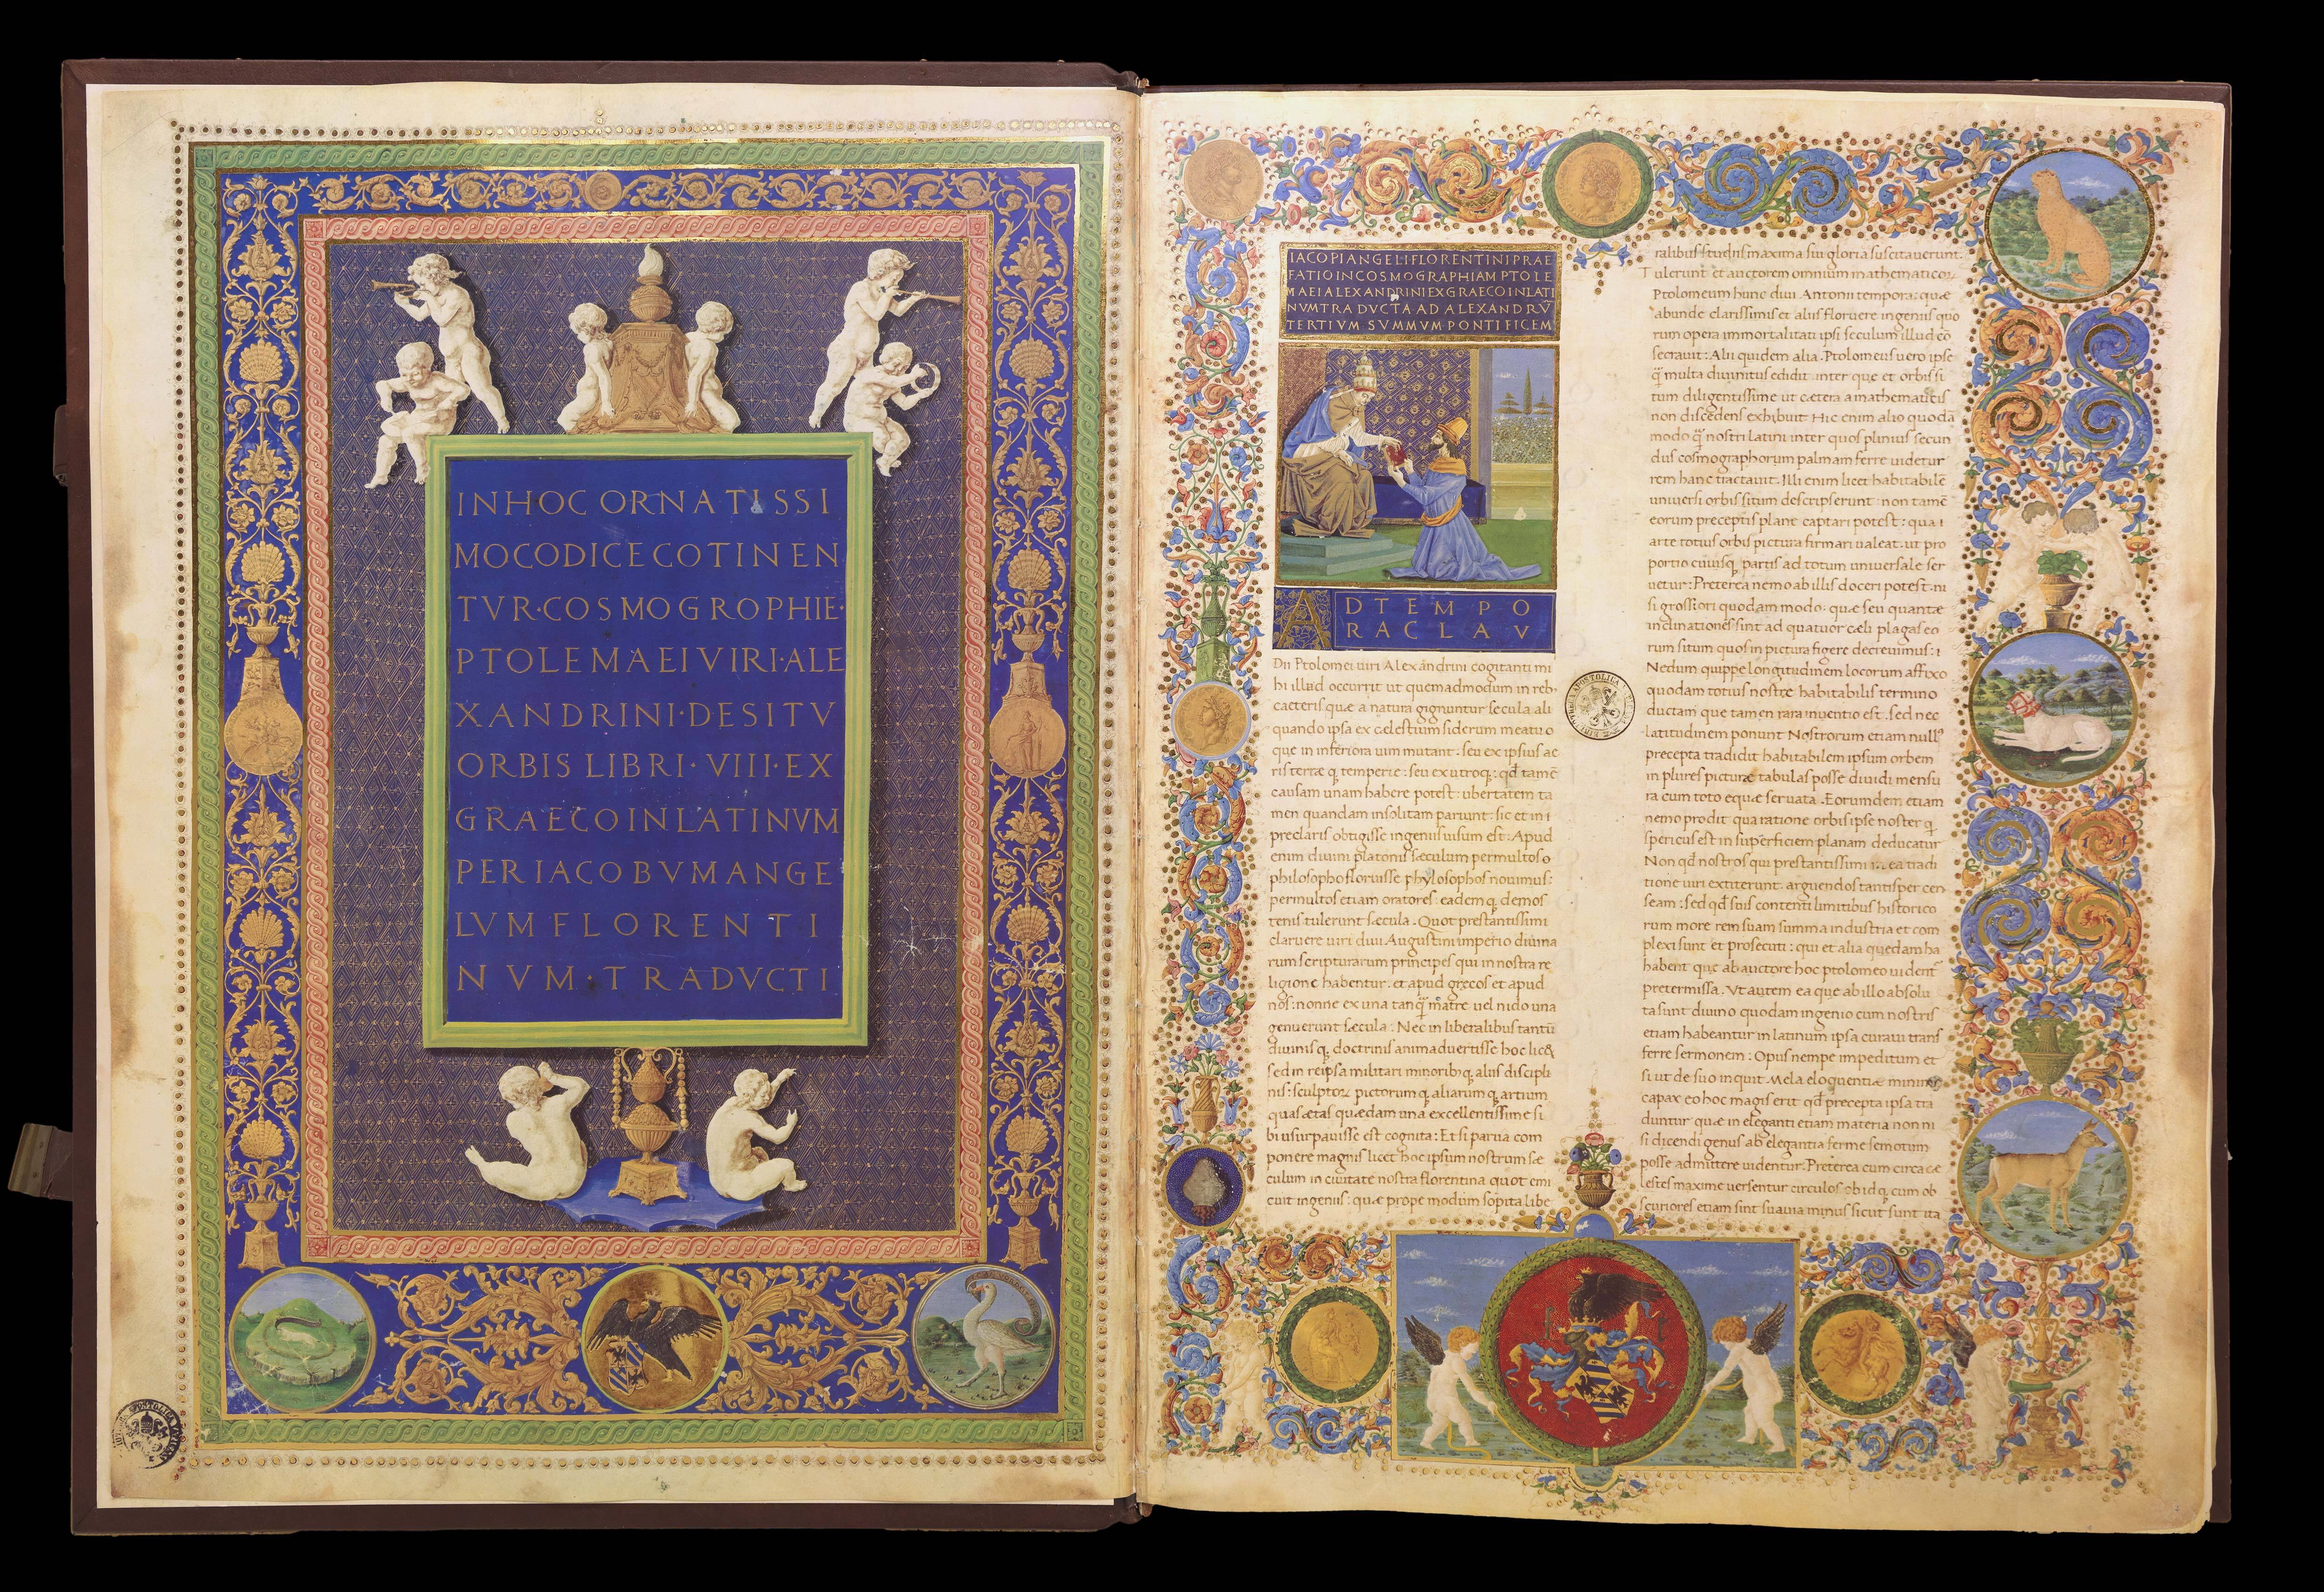 INHOC ORNATISSI
MOCODICECOTINEN
TVR·COSMOGROPHIE·
PTOLEMAEIVIRI·ALE
XANDRINI·DESITV
ORBIS LIBRI·VIII·EX
GRAECOINLATINVM
PERIACOBVMANGE
LVMFLORENTI
NVM·TRADVCTI
IACOPIANGELIFLORENTINIPRAE
FATIOINCOSMOGRAPHIAMPTOLE
MAEIALEXANDRINIEXGRAECOINLATI
NVMTRADVCTAADALEXANDRV̄
TERTIVM SVMMVM PONTIFICEM
ADTEMPO
RACLAV
Dii Ptolomei uiri Alexandrini cogitanti mi
hi illud occurrit ut quemadmodum in reb;
caeteris quæ a natura gignuntur secula ali
quando ipsa ex cælestium siderum meatu o
que in inferiora uim mutant: seu ex ipsius ae
ris terræ q; temperie: seu ex utroq;: qd̄ tamē
causam unam habere potest: ubertatem ta
men quandam insolitam pariunt: sic et in i
preclaris obtigisse ingeniis uisum est: Apud
enim diuini platonis sæculum permultos o
philosopho floruisse phylosophos nouimus:
permultos etiam oratores: eadem q; demos
tenis tulerunt sæcula: Quot prestantissimi
claruere uiri diui Augusti imperio diuina
rum scripturarum principes qui in nostra re
ligione habentur. et apud grecos et apud
nos: nonne ex una tanq̄ matre uel nido una
genuerunt sæcula: Nec in liberalibus tantū
diuinis q; doctrinis animaduertisse hoc lice
sed in reipsa militari minorib; q; aliis discipli
nis: sculptor pictorum q; aliarum q; artium
quas ætas quædam una excellentissime si
bi usurpauisse est cognita: Et si parua com
ponere magnis licet hoc ipsum nostrum sæ
culum in ciuitate nostra florentina quot emi
cuit ingeniis: quæ prope modum sopita libe
ralibus studiis maxima sui gloria suscitauerunt.
Tulerunt et auctorem omnium mathematicor
Ptolomeum hunc diui Antonii tempora: quæ
abunde clarissimis et aliis floruere ingeniis quo
rum opera immortalitati ipsi seculum illud cō
secrauit: Alii quidem alia. Ptolomeus uero ipse
q̄ multa diuinitus edidit inter que et orbis si
tum diligentissime ut cætera a mathematicis
non discedens exhibuit Hic enim alio quodā
modo q̄ nostri latini inter quos plinius secun
dus cosmographorum palmam ferre uidetur
rem hanc tractauit. Illi enim licet habitabilē
uniuersi orbis situm descripserunt: non tamē
eorum preceptis plane captari potest: qua i
arte totius orbis pictura firmari ualeat. ut pro
portio cuiusq; partis ad totum uniuersale ser
uetur: Preterea nemo ab illis doceri potest. ni
si grossiori quodam modo: quæ seu quantæ
inclinationes sint ad quatuor cæli plagas eo
rum situm quos in pictura figere decreuimus: i
Nedum quippe longitudinem locorum affixo
quodam totius nostre habitabilis termino
ductam que tamen rara inuentio est. sed nec
latitudinem ponunt Nostrorum etiam null9
precepta tradidit habitabilem ipsum orbem
in plures picturæ tabulas posse diuidi mensu
ra cum toto equæ seruata. Eorumdem etiam
nemo prodit qua ratione orbis ipse noster q
spericus est in superficiem planam deducatur
Non qd̄ nostros qui prestantissimi ea tradi
tione uiri extiterunt. arguendos tantisper cen
seam: sed qd̄ suis contenti limitibus historico
rum more rem suam summa industria et com
plexi sunt et prosecuti: qui et alia quedam ha
habent quæ ab auctore hoc ptolomeo uident
pretermissa. Vt autem ea que ab illo absolu
ta sunt diuino quodam ingenio cum nostris
etiam habeantur in latinum ipsa curaui trans
ferre sermonem: Opus nempe impeditum et
si ut de suo inquit Mela eloquentiæ minime
capax eo hoc magis erit qd̄ precepta ipsa tra
duntur quæ in eleganti etiam materia non ni
si dicendi genus ab elegantia ferme semotum
posse admittere uidentur. Preterea cum circa cæ
lestes maxime uersentur circulos ob id q; cum ob
scuriores etiam sint suauia minus sicut sunt ita